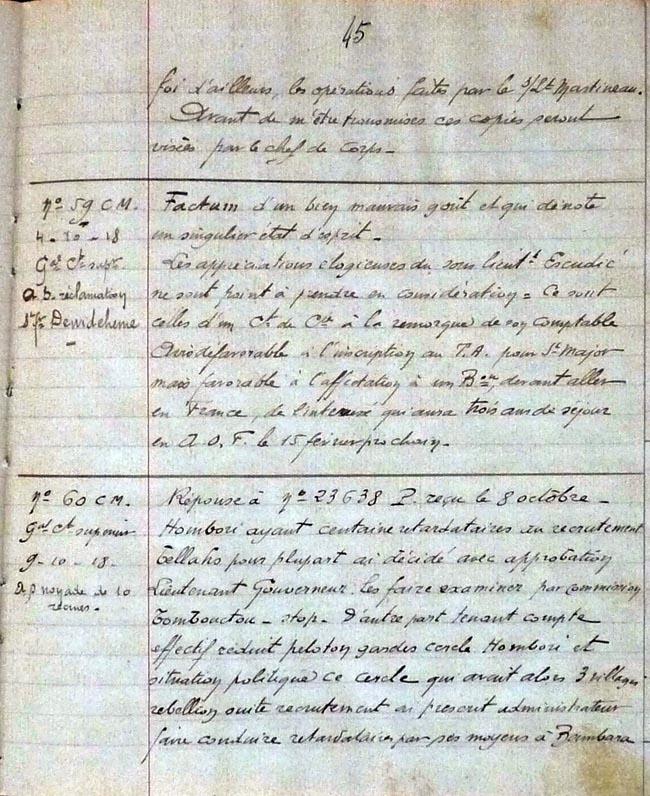 45
foi d'ailleurs, les opérations faites par le S/Lt Martineau.
Avant de m'être transmises ces copies seront
visées par le chef de corps -
no 59 C.M.
4 - 10 - 18
Gal Ct supr
a. s. réclamation
Sgt Demdeheme
Factum d'un bien mauvais goût et qui dénote
un singulier état d'esprit -
Les appréciations élogieuses du sous lieutt Escudié
ne sont point à prendre en considération = Ce sont
celles d'un Ct de Cie à la remorque de son comptable
Avis défavorable à l'inscription au T.A. pour St Major
mais favorable à l'affectation à un Bon devant aller
en France, de l'intéressé qui aura trois ans de séjour
en A.O.F. le 15 février prochain -
no 60 C.M.
Gal Ct supérieur
9 - 10 - 18 -
a.s. noyade de 10
recrues -
Réponse à no 23638 P. reçu le 8 octobre -
Hombori ayant centaine retardataires du recrutement
Bellahs pour plupart ai décidé avec approbation
Lieutenant Gouverneur les faire examiner par commission
Tombouctou - stop - D'autre part tenant compte
effectif réduit peloton gardes cercle Hombori et
situation politique ce cercle qui avait alors 3 villages
rebellion suite recrutement ai prescrit administrateur
faire conduire retardataires par ses moyens à Bambara